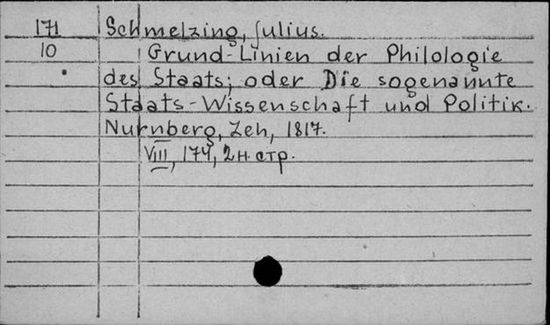 171 Schmelzing, Julius.
10 Grund-Linien der Philologie
des Staats; oder Die sogenannte
Staats-Wissenschaft und Politik.
Nurnberg, Zeh, 1817.
VIII, 174, 2 н. стр.